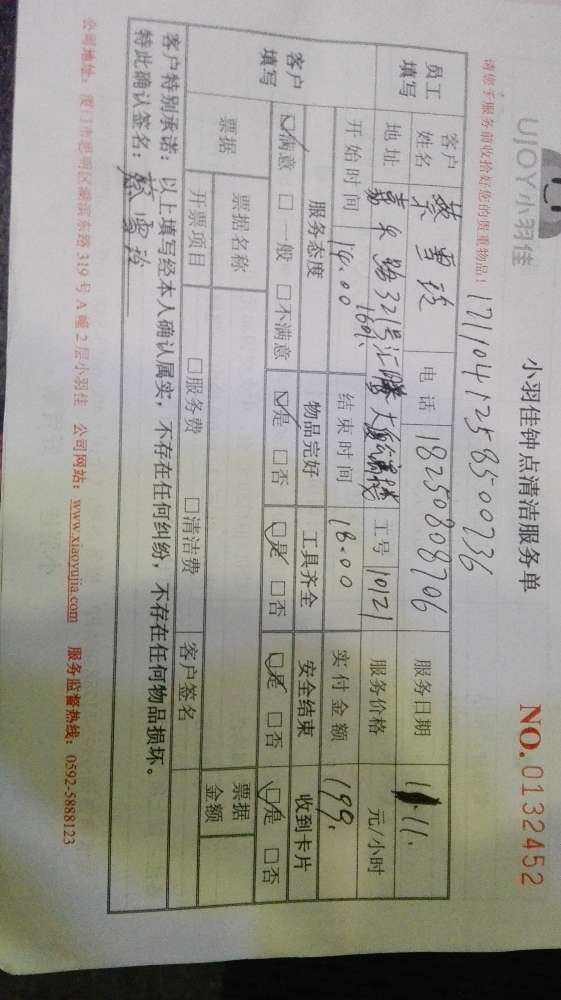 UJOY小羽佳
小羽佳钟点清洁服务单
NO.0132452
请您于服务前收拾好您的贵重物品！
1711041258500736
员工填写
客户姓名 蔡雪 电话 18250808706 服务日期 11.11.
地址 嘉禾路321号汇腾大 工号 10121 服务价格 元/小时
开始时间 14.00 结束时间 18.00 实付金额 199.
客户填写
服务态度 物品完好 工具齐全 安全结束 收到卡片
☑满意 □一般 □不满意 ☑是 □否 ☑是 □否 ☑是 □否 ☑是 □否
票据 票据名称 票据金额
开票项目 □服务费 □清洁费 客户签名
客户特别承诺：以上填写经本人确认属实，不存在任何纠纷，不存在任何物品损坏。
特此确认签名：蔡雪
公司地址：厦门市思明区湖滨东路319号A幢2层小羽佳 公司网站：www.xiaoyujia.com 服务监督热线：0592-5888123